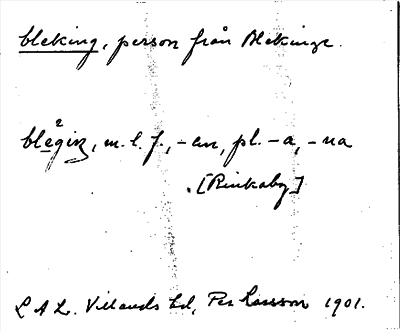 bleking, person från Blekinge.
blegiŋ, m. l. f., -en, pl. -a, -na
.[Rinkaby]
L A L. Villands hd, Per Larsson 1901.